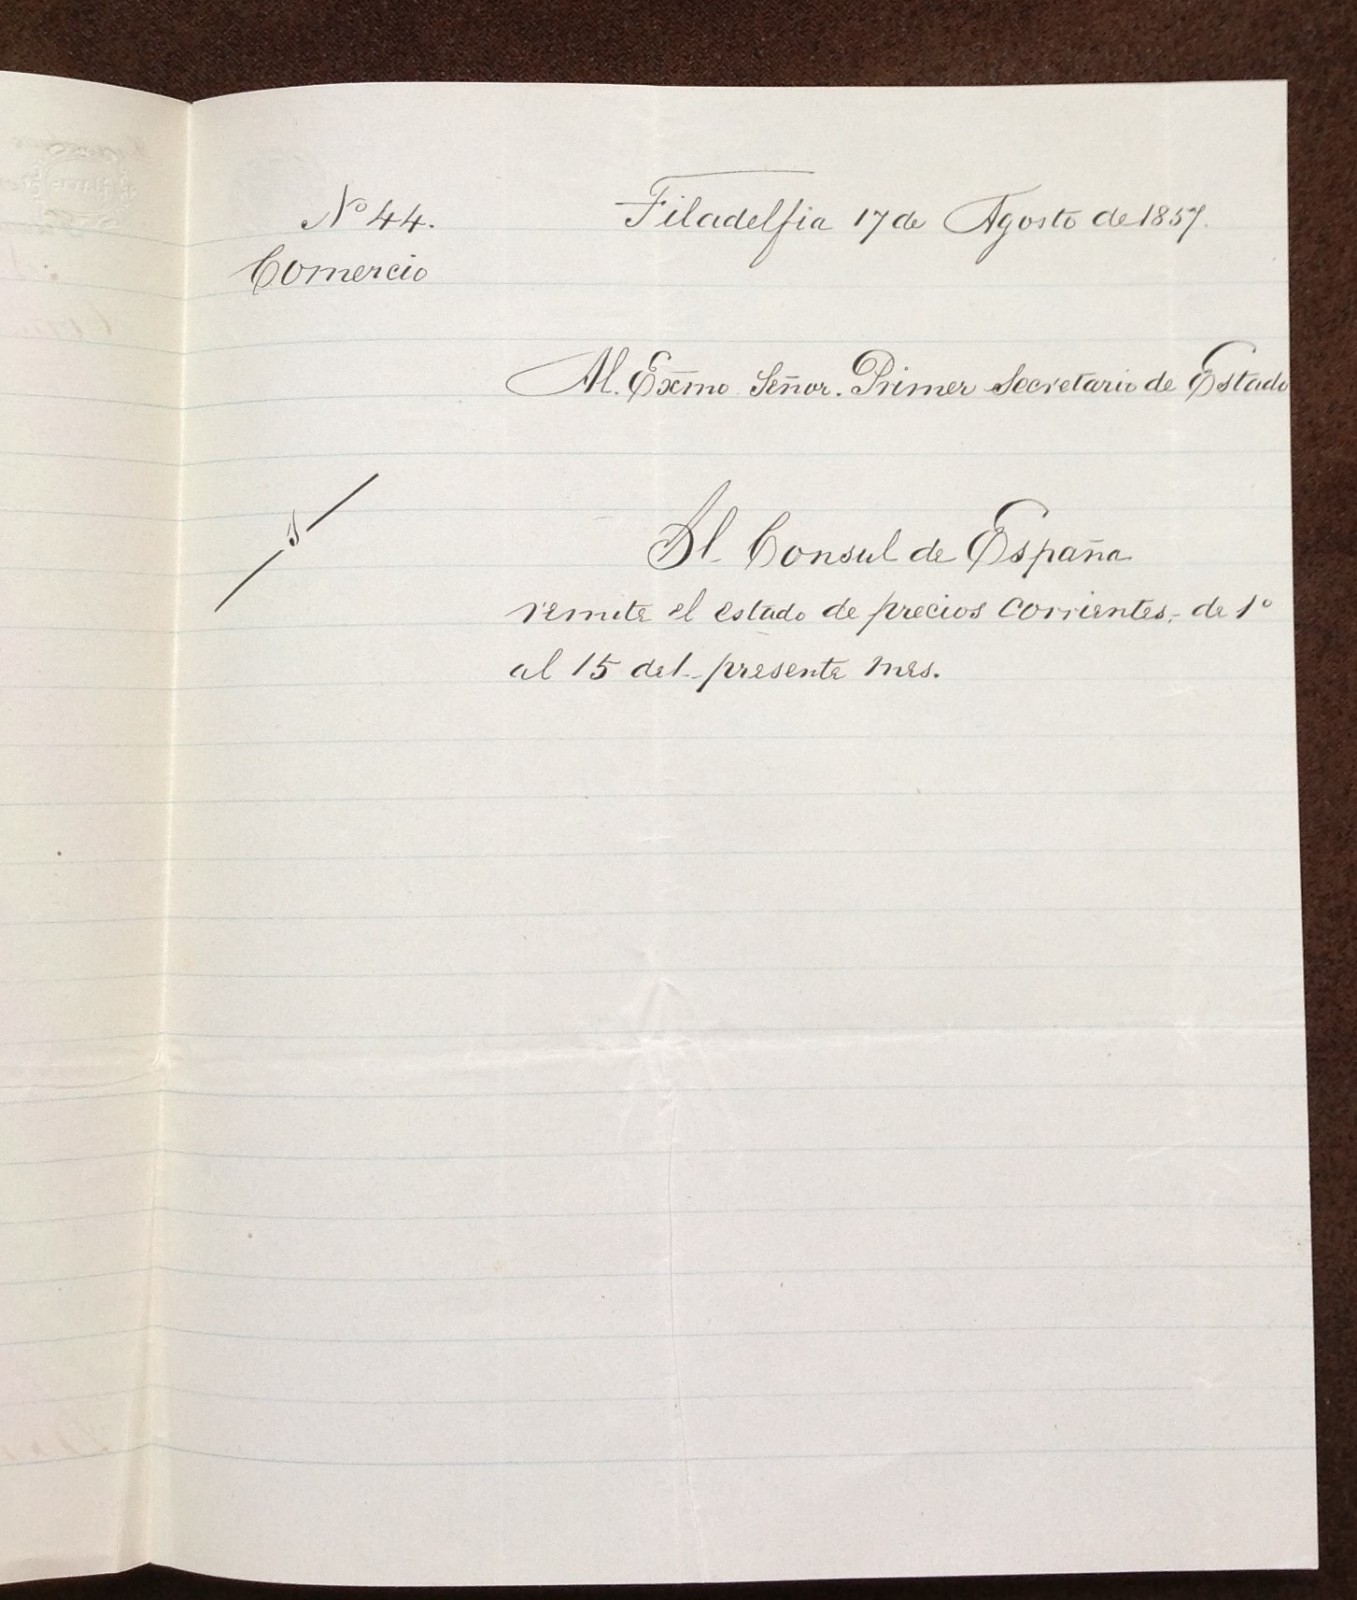 Nº 44. Filadelfia 17 de Agosto de 1857.
Comercio
Al. Exmo Señor. Primer Secretario de Estado
1
El Consul de España
remite el estado de precios corrientes, de 1º
al 15 del presente mes.